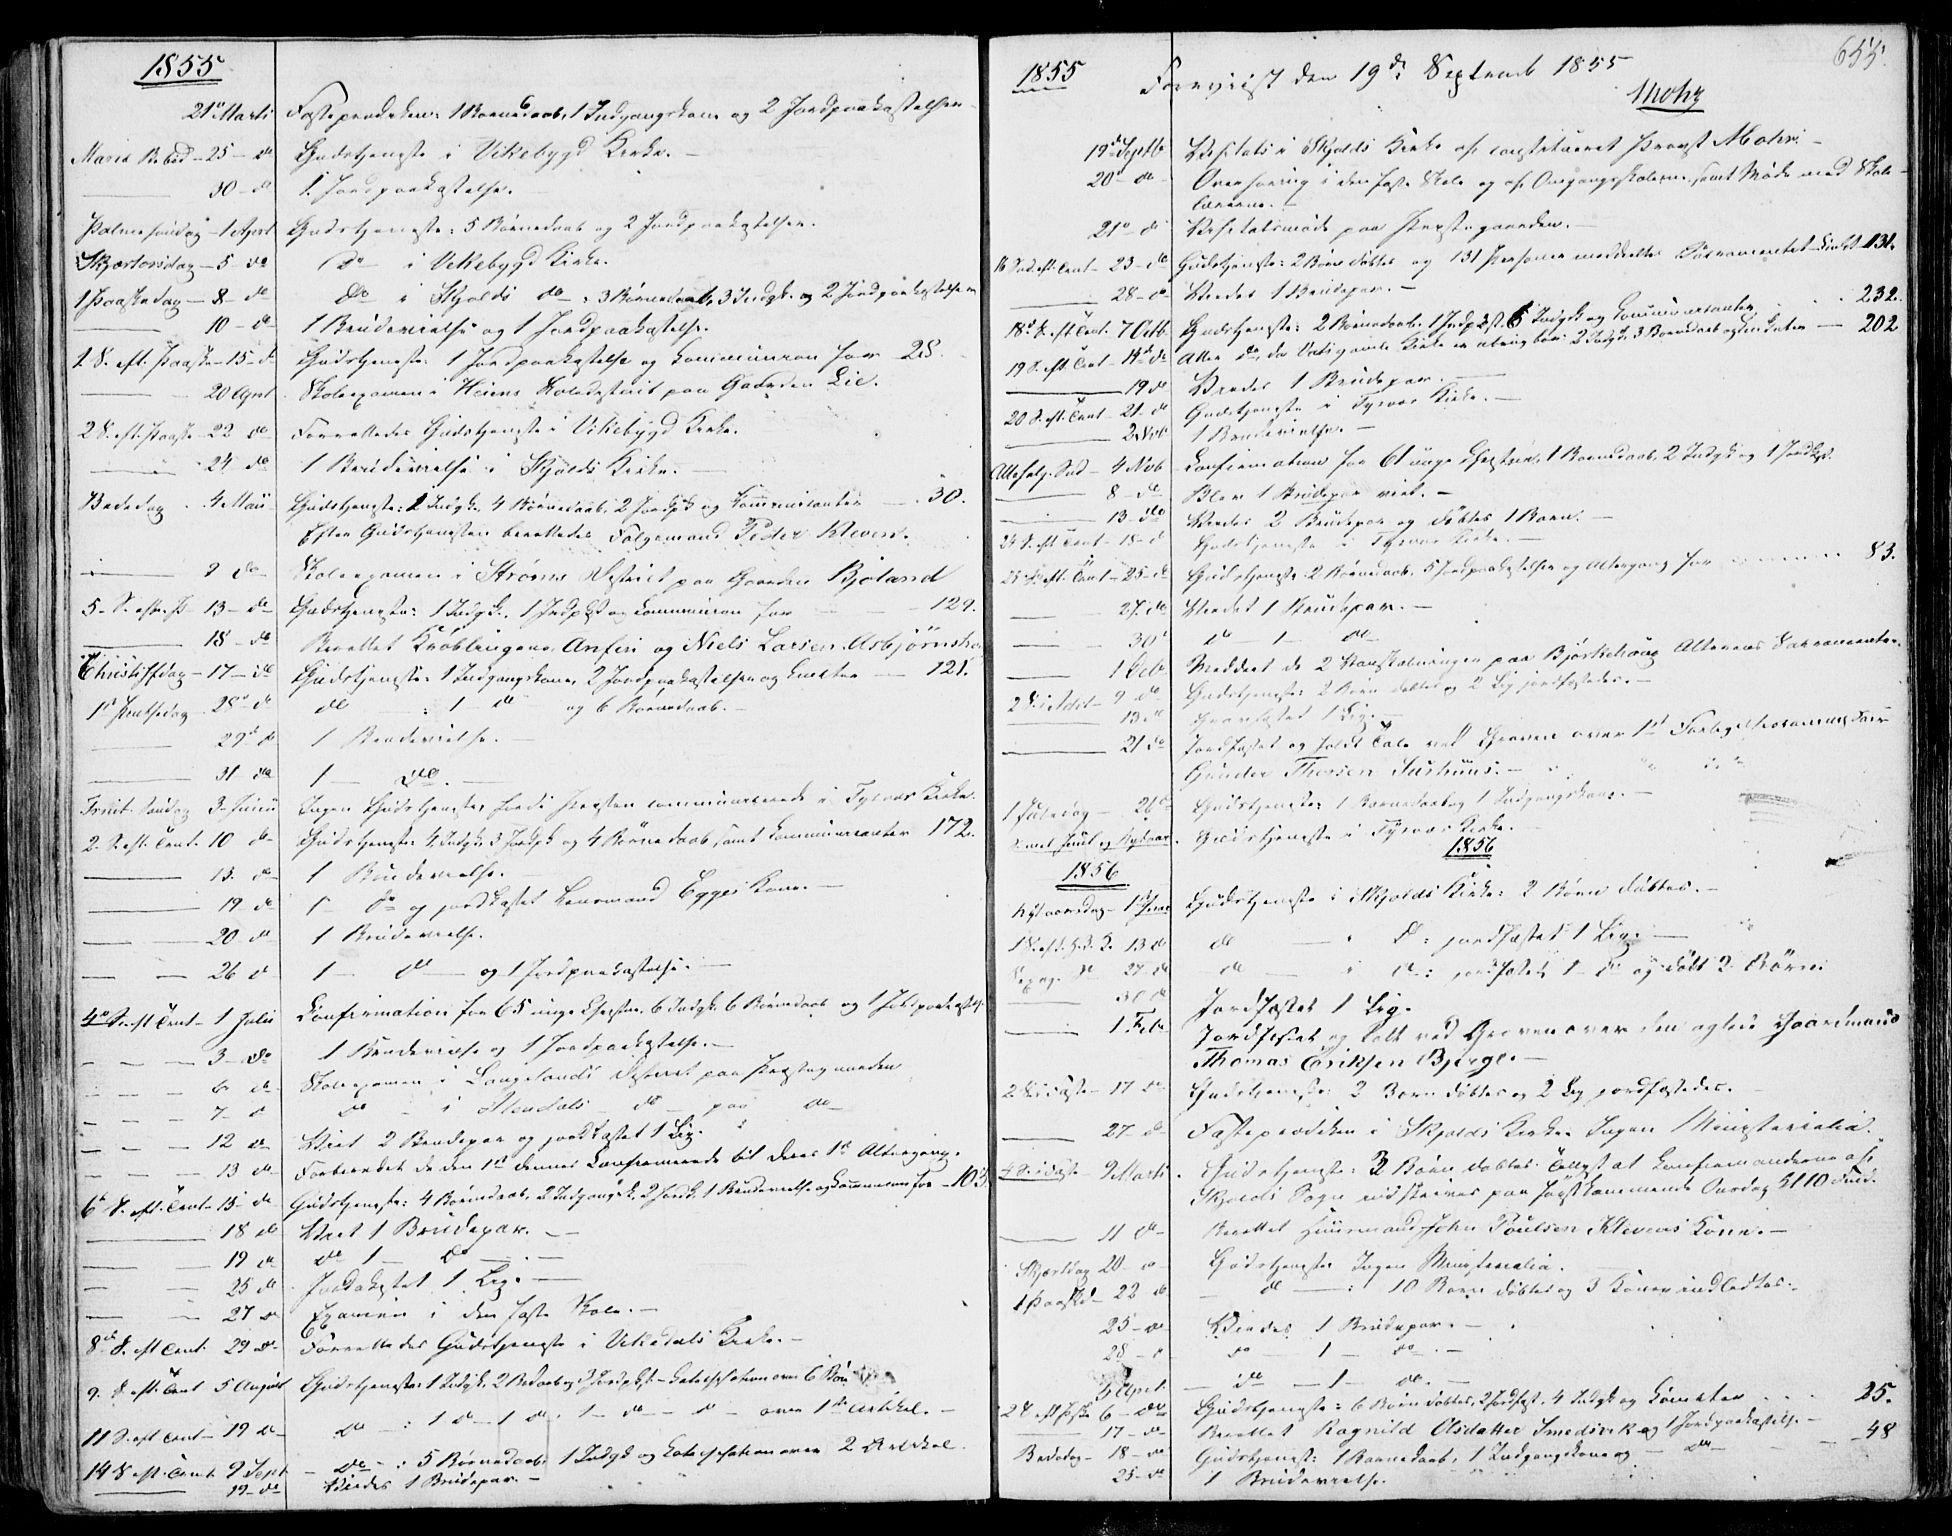 1855
21de Marts Fasteprædiken: 1 Barnedaab, 1 Indgangskone og 2 Jordpaakastelser
Mariæ Bebud - 25 - do Gudstjeneste i Vikebygd Kirke. -
30 - do 1 Jordpaakastelse. -
Palmesøndag - 1 April Gudstjeneste: 5 Barnedaab og 2 Jordpaakastelser.
Skjærtorsdag - 5 - do do i Vikebygd Kirke.
1 Paaskedag - 8 - do do i Skjolds do: 3 Barnedaab, 3 Indgk. og 2 Jordpaakastelser
10 - do 1 Brudevielse og 1 Jordpaakastelse.
1 S. eft. Paaske - 15 - d Gudstjeneste: 1 Jordpaakastelse og Communion for 28.
20 April Skoleexamen i Heiens Skoledistrict paa Gaarden Lie.
2 S. eft. Paaske - 22 do Forrettedes Gudstjeneste i Vikebygd Kirke.
24 do 1 Brudevielse i Skjolds Kirke. -
Bededag 4 Maii Gudstjeneste: 1 Indgk. 4 Barnedaab, 2 Jordpk. og Communicanter - 30.
Efter Gudstjenesten berettedes Følgemand Peder Kleven.
9 do Skoleexamen i Strøms District paa Gaarden Bjoland
5 - S. eft. P. 13 - do Gudstjeneste: 1 Indgk. 1 Jordpk. og Communion for - 129.
18 - do Berettet Anfin og Niels Larsen Asbjørns
Christi Hfdag - 17 - do Gudstjeneste: 1 Indgangskone, 2 Jordpaakastelser og - 121.
1ste Pintsedag - 28de d do: 1 do og 6 Barnedaab. -
29de do 1 Brudevielse. -
31 do 1 - do. -
Trinit. Søndag 3 Junii Ingen Gudstjeneste fordi Præsten communicerede i Tysvær Kirke.
2. S. eft. Trint. 10 do Gudstjeneste: 4 Indgk. 3 Jordpk. og 4 Barnedaab, samt Communicanter 172.
13. do 1 Brudevielse. -
19 - do 1 - do og jordfæstet Lensmand Egges Kone. -
20 do 1 Brudevielse.
26 do 1 - do - og 1 Jordpaakastelse. -
4de S. eft. Trint - 1 Julii Confirmation for 65 unge Christne, 6 Indgk. 6 Barnedaab og 1 Jordpaakastel.
3 - do 1 Brudevielse og 1 Jordpaakastelse. -
6 do Skoleexamen i Langelands District paa Præstegaarden
7 - d do - i - do - paa do -
12 do Viet 2 Brudepar og jordfæstet 1 Lig.
13 do Forberedet de den 1ste dennes Confirmerede til deres 1ste Altergang.
6te S. eft. Trint - 15 - do Gudstjeneste: 4 Barnedaab, 2 Indgangsk. 2 Jordk. 1 Brudevielse og Communion for - 103
18 do Viet 1 Brudepar. -
19 do do 1 do -
25 do Jordfæstet 1 Lig. -
27 do Examen i den faste Skole. -
8de S. eft. Trint. 29 do - Forrettedes Gudstjeneste i Vikedals Kirke. -
9. S. eft. Trint 5 August Gudstjeneste: 1 Indgk, 2 Bdaab og 3 Jordpk. - Catechisation over 6 Bøn
11 S. eft Trint - 19 do - do: 1 do - 1 do. 1 - do - do - over 1ste Artikel. -
14 S. eft. Trint. 9 Sept - do -: 5 Barnedaab, 1 Indgk og Catechisation over 2 Artikel.
19 - do Viedes 1 Brudepar. -
655.
1855 Forevist den 19de Septemb 1855
Mohr
19de Septb Visitats i Skjolds Kirke af constitueret Provst Mohr. -
20 - do - Overhøring i den faste Skole og af Omgangsskolerne, samt Møde med Skole-
lærerne. -
21de - d Visitatsmøde paa Præstegaarden. -
16 Snd. eft. Trint - 23 - do Gudstjeneste: 2 Børn døbtes og 131 Personer meddeltes Sacramentet 131.
28 - do Viedes 1 Brudepar. -
18de S. eft Trint. 7 Octb Gudstjeneste: 2 Barnedaab, 1 Jordpkst. 6 Indgk og Communicanter - 232.
19 S. eft Trint - 14de do Atter do, da Vats gamle Kirke er ubrugbar: 2 Indgk, 3 Barnedaab og - 202
19 do Viedes 1 Brudepar. -
20 S. eft. Trint - 21 - do Gudstjeneste i Tysvær Kirke. -
2 Nov 1 Brudevielse. -
Allehelg. Snd - 4 Nov Confirmation for 61 unge Christne, 1 Barnedaab, 2 Indgk og 1 Jordkst.
8 - do Blev 1 Brudepar viet. -
13 - do Viedes 2 Brudepar og døbtes 1 Barn. -
24 S. eft Trint - 18 - d Gudstjeneste i Tysvær Kirke. -
25 S. eft. Trint - 25 - do Gudstjeneste: 2 Barnedaab, 5 Jordpaakastelser og Altergang for 83.
27. do Viedes 1 Brudepar. -
30te do - 1 - do
1 Deb Meddeelt de 2 paa Bjørkehaug Alterens Sacramenter.
2 S. i Advt - 9 do Gudstjeneste: 2 Børn døbtes og 2 Lig jordfæstedes. -
13 do Jordfæstet 1 Lig. -
21 do Jordfæstet og holdt Tale ved Graven over 1ste Forligelsescommissair
Gunder Thorsen Sushuus. -
1 Juledag - 26 do Gudstjeneste: 1 Barnedaab og 1 Indgangskone. -
S. mel. Juul og Nytaar. Gudstjeneste i Tysvær Kirke. -
1856 1856
Nytaarsdag - 1ste Janr Gudstjeneste i Skjolds Kirke: 2 Børn døbtes. -
1 S. ef. H. 3. K. 13 do do - i do: jordfæstet 1 Lig. -
Septuag. S. 27 do do i do: jordfæstet 1 - do og døbt 2 Børn.
30 do Jordfæstet 1 Lig.
1 Febr Jordfæstet og talt ved Graven over den agtede Gaardmand
Thomas Eriksen Bjerge. -
2 S. i Faste - 17 do Gudstjeneste: 2 Børn døbtes og 2 Lig jordfæstedes. -
27 - do Fasteprædiken i Skjolds Kirke. Ingen Ministerialia.
4 S. i Faste - 2 Marts. Gudstjeneste: 2 Børn døbtes. Tillyst at Confirmanderne af
Skjolds Sogn udskrives paa førstkommende Onsdag Kl 10 Form.
11 do Berettet Huusmand John Poulsen Klevens Kone. -
Skjærtdag 20 - do Gudstjeneste Ingen Ministerialia.
1 Paaskd - 23 do - do -: 10 Børn døbtes og 3 Koner indledtes. -
25 - do Viedes 1 Brudepar. -
28 - d do - 1 - do. -
5 April - do - 1 - do. -
2 S. eft Paaske 6 - do Gudstjeneste: 6 Børn døbtes, 2 Jordfæst. 4 Indgk og - 25.
17 - do Berettet Ragnild Olsdatter Smedsvik og 1 Jordpaakastelse. -
Bededag - 18 - do Gudstjeneste: 1 Barnedaab, 1 Indgangskone og do - 48
25 - do 1 Brudevielse.